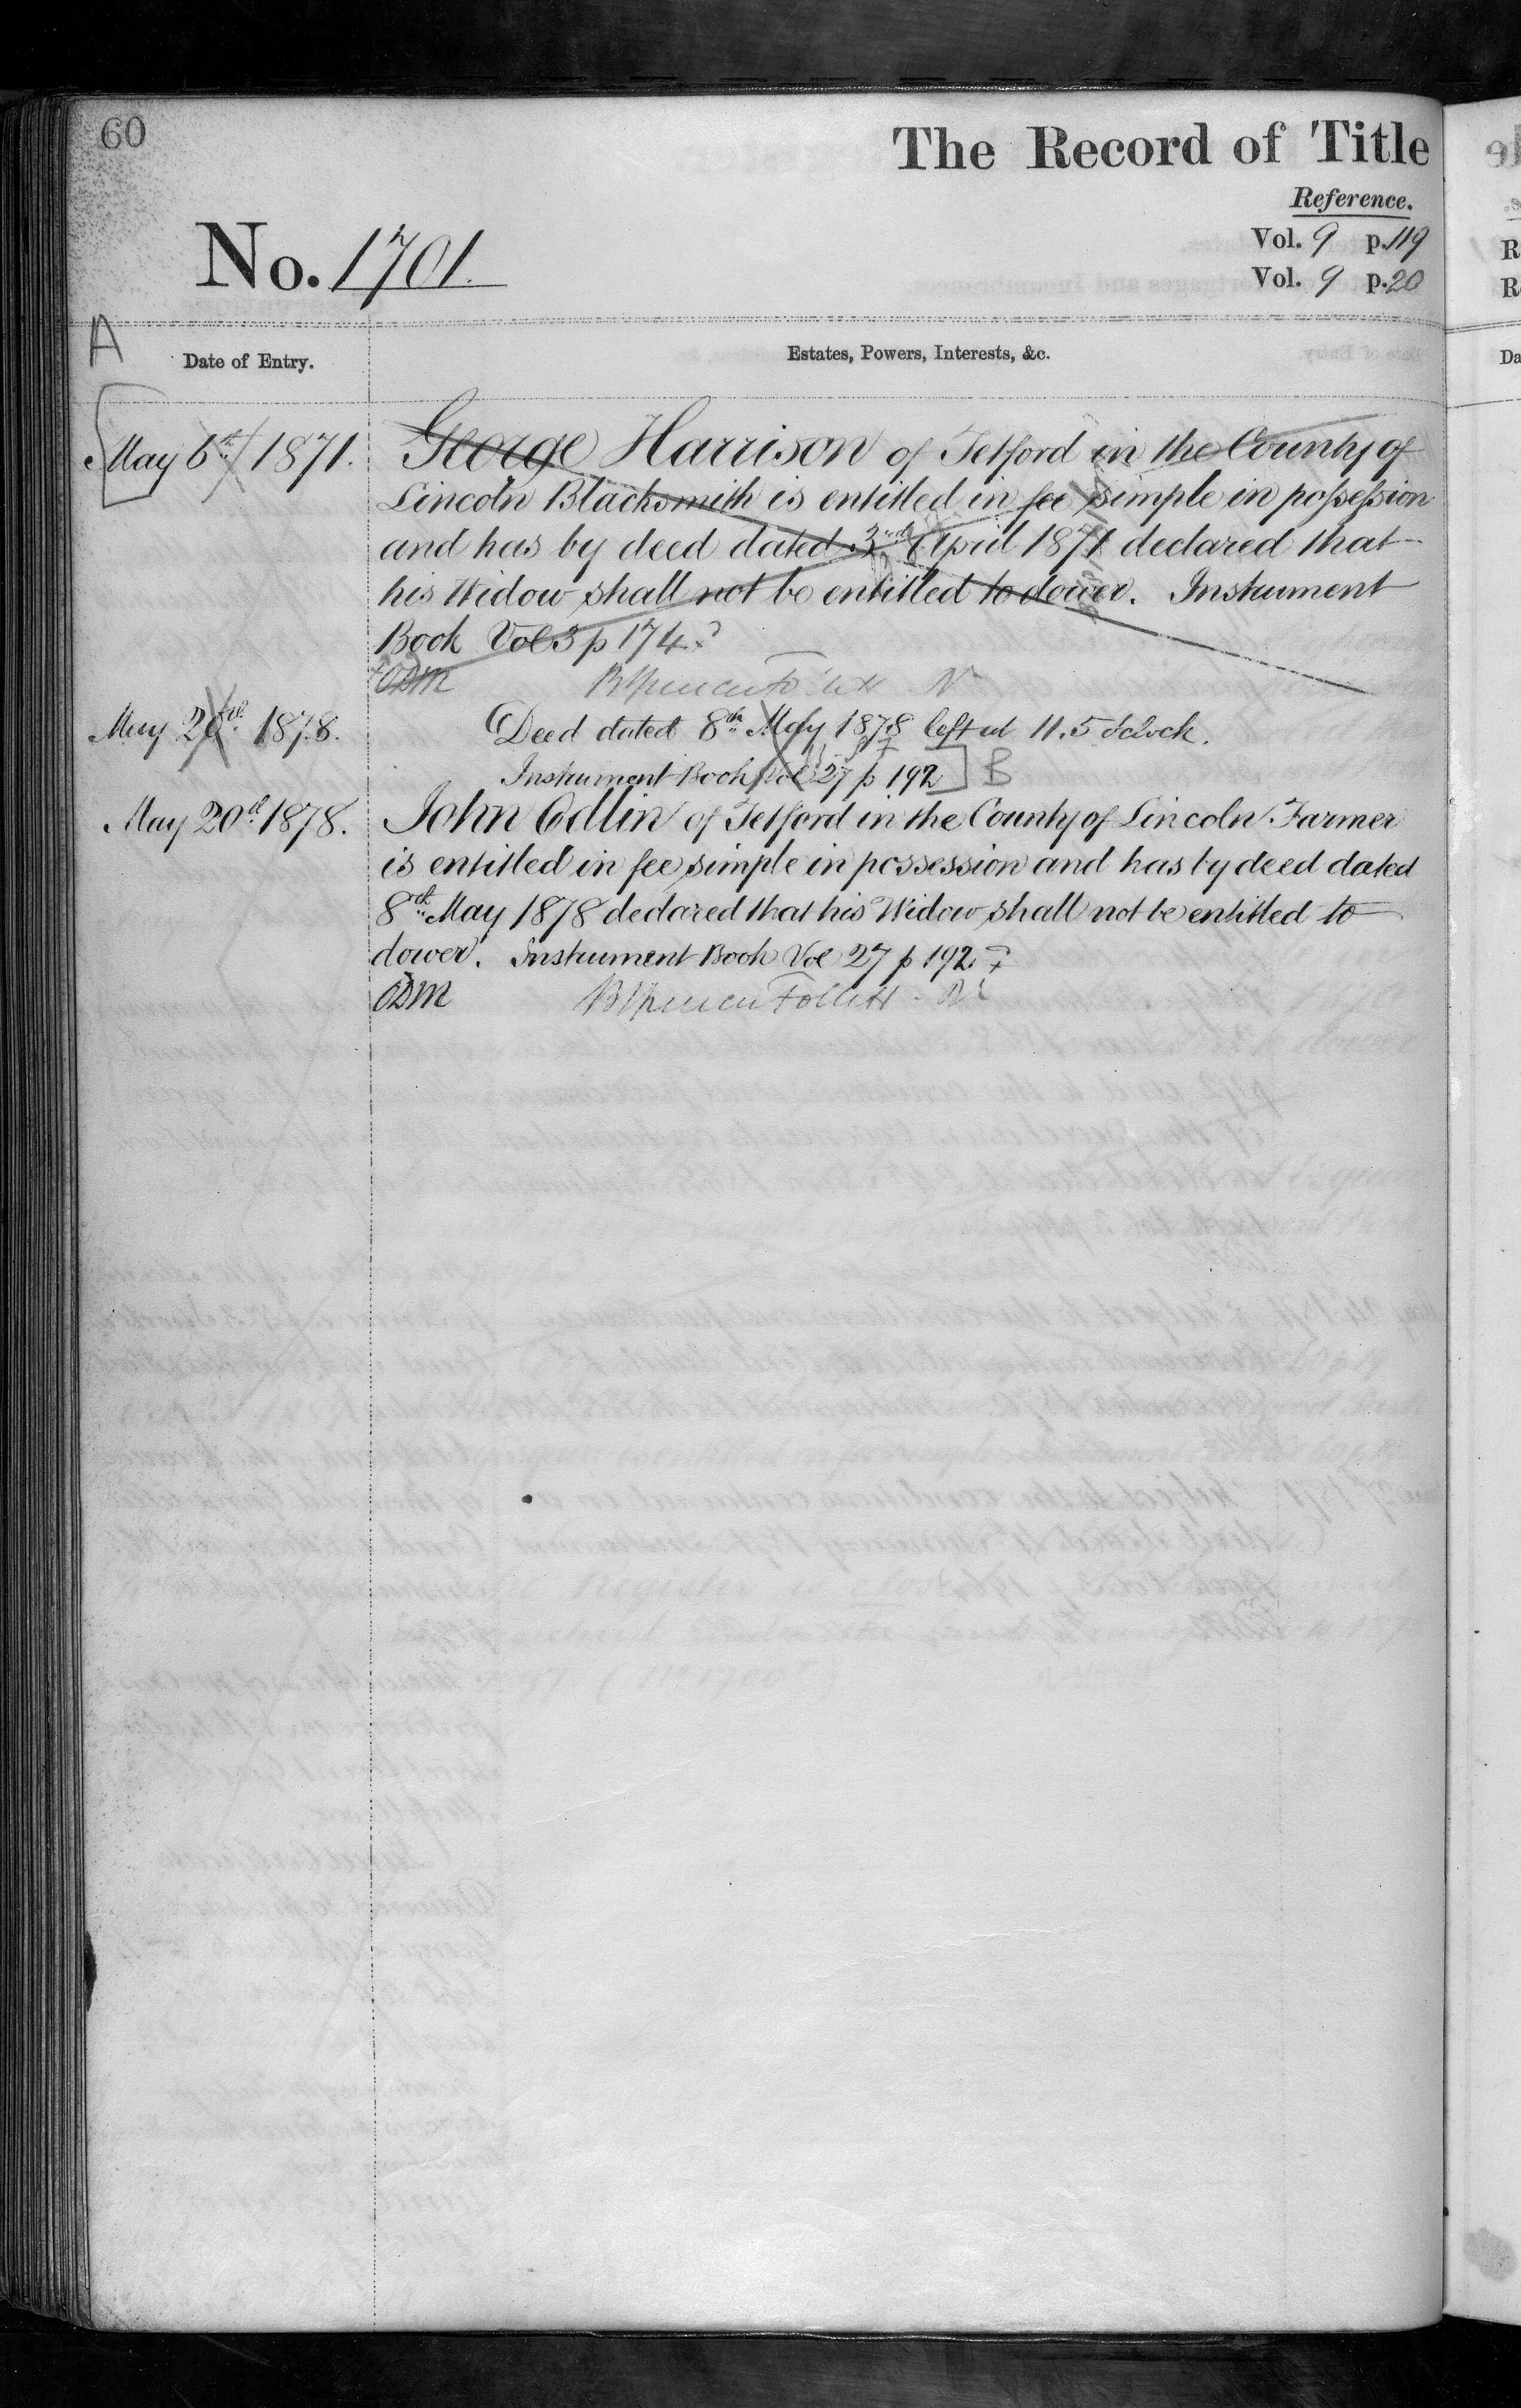 60
The Record of Title
Reference.
No. 1701.
Vol. 9 p. 119
Vol. 9 p. 20
A
Date of Entry.
Estates, Powers, Interests, &c.
May 6th 1871. George Harrison of Tetford in the County of
Lincoln Blacksmith is entitled in fee simple in possession
and has by deed dated 3rd April 1871 declared that
his Widow shall not be entitled to dower. Instrument
Book Vol 3 p 174
ODM
May 20th 1878. Deed dated 8th May 1878 left at 11.5 o'clock.
Instrument Book Vol 27 p 192 B
May 20th 1878. John Odlin of Tetford in the County of Lincoln Farmer
is entitled in fee simple in possession and has by deed dated
8th May 1878 declared that his Widow shall not be entitled to
dower. Instrument Book Vol 27 p 192
ODM Follett